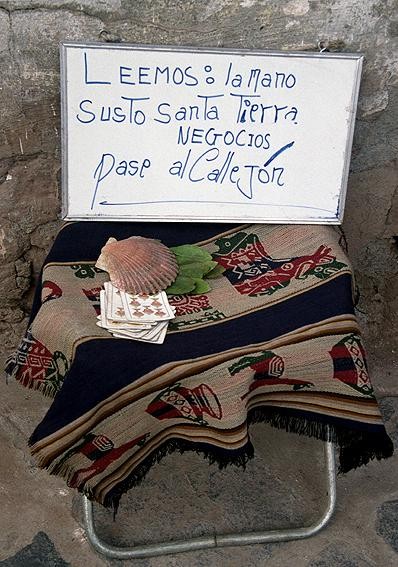 LEEMOS: la mano
SUSTO Santa Tierra
NEGOCIOS
pase al Callejón